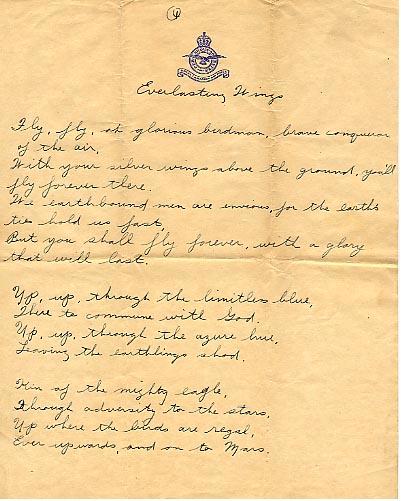 4
Everlasting Wings
Fly, fly, oh glorious birdman, brave conqueror
of the air,
With your silver wings above the ground, you'll
fly forever there.
We earthbound men are envious, for the earth's
ties hold us fast,
But you shall fly forever, with a glory
that will last.
Up, up, through the limitless blue,
There to commune with God.
Up, up, through the azure hue,
Leaving the earthlings shod.
Kin of the mighty eagle,
Through adversity to the stars,
Up where the birds are regal,
Ever upwards, and on to Mars.